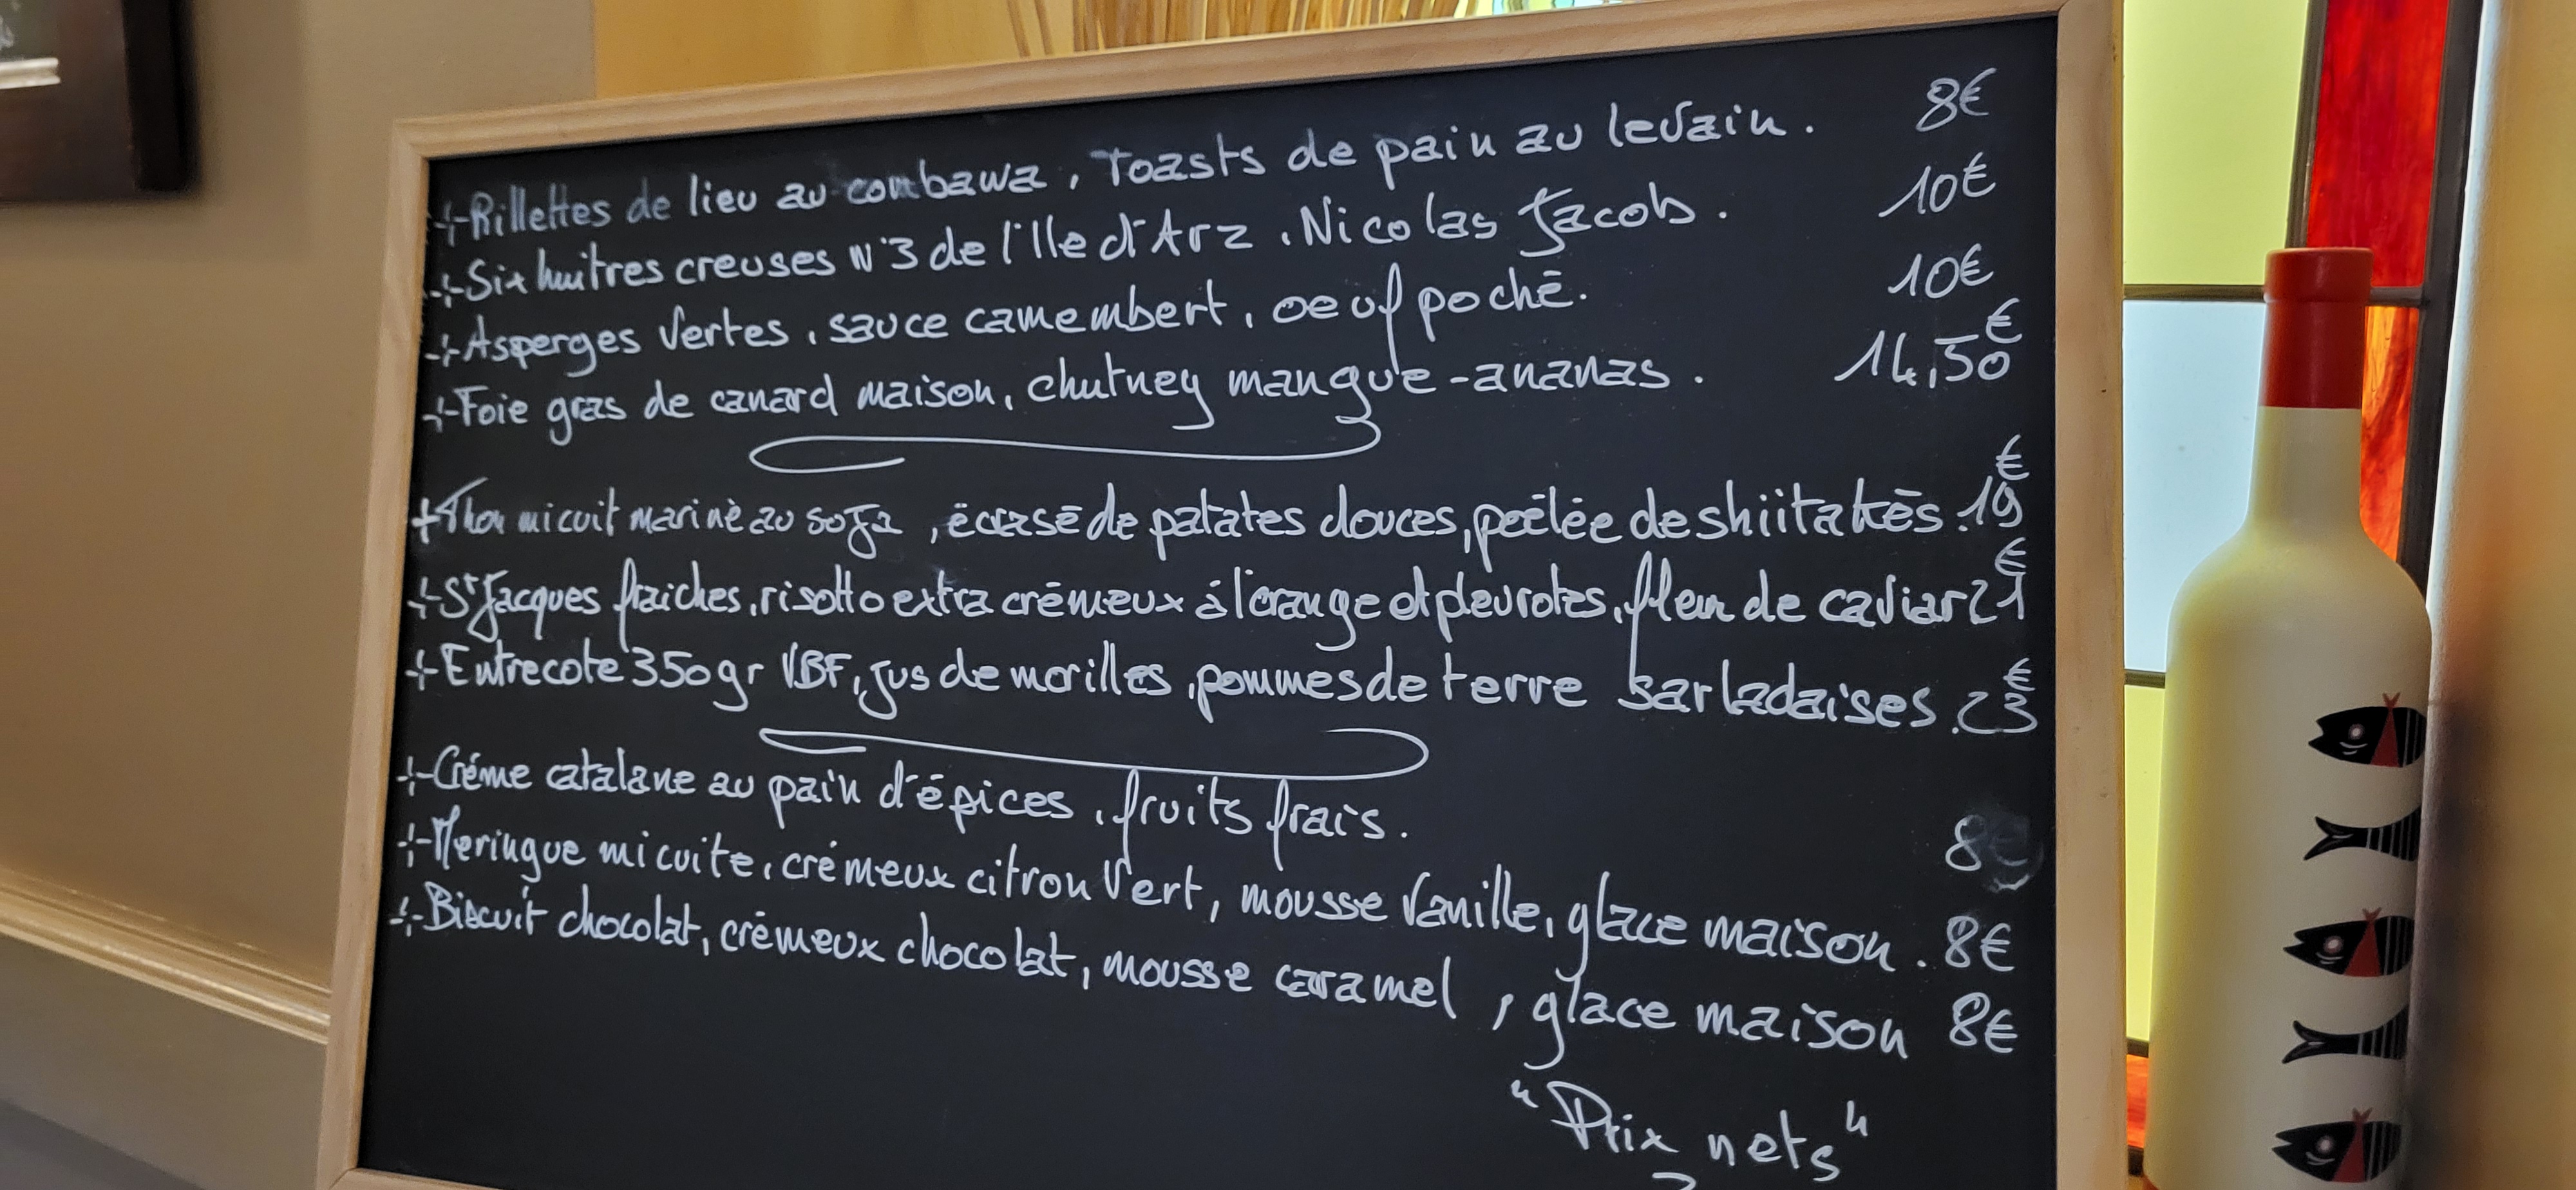 -Rillettes de lieu au combawa, Toasts de pain au levain. 8€
-Six huîtres creuses N°3 de l'Ile d'Arz, Nicolas Jacob. 10€
-Asperges vertes, sauce camembert, oeuf poché. 10€
-Foie gras de canard maison, chutney mangue-ananas. 14,50€
+Thon micuit mariné au soja, écrasé de patates douces, poêlée de shiitakés. 19€
+St Jacques fraiches, risotto extra crémeux à l'orange et pleurotes, fleur de caviar 21€
+Entrecote 350gr VBF, jus de morilles, pommes de terre sarladaises. 23€
-Créme catalane au pain d'épices, fruits frais. 8€
-Meringue micuite, crémeux citron vert, mousse vanille, glace maison. 8€
-Biscuit chocolat, crémeux chocolat, mousse caramel, glace maison 8€
"Prix nets"